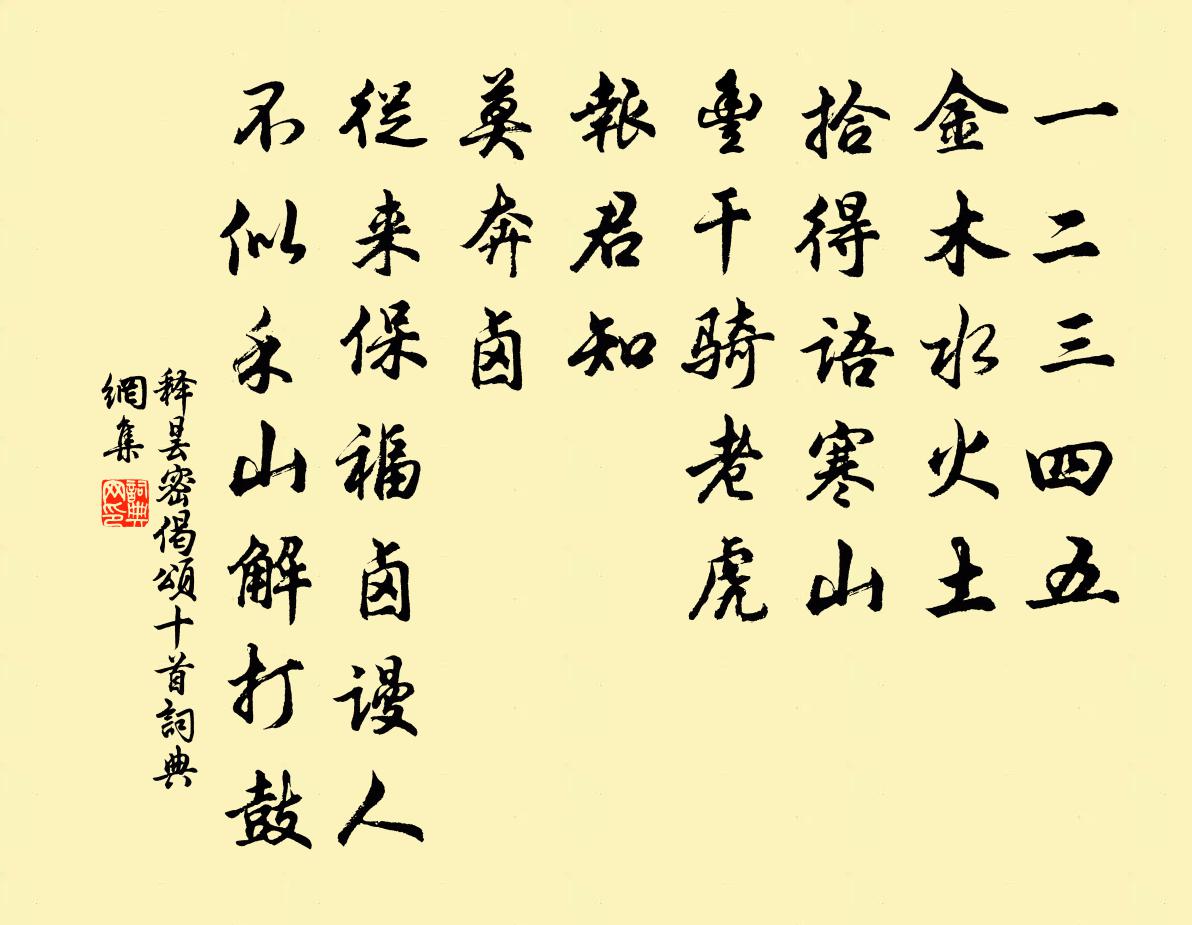 一二三四五
金木水火土
拾得語寒山
豊干骑老虎
報君知
莫奔卤
從来保福卤谩人
不似禾山解打鼓
释昙密偈頌十首詞典
網集
詞典
网印